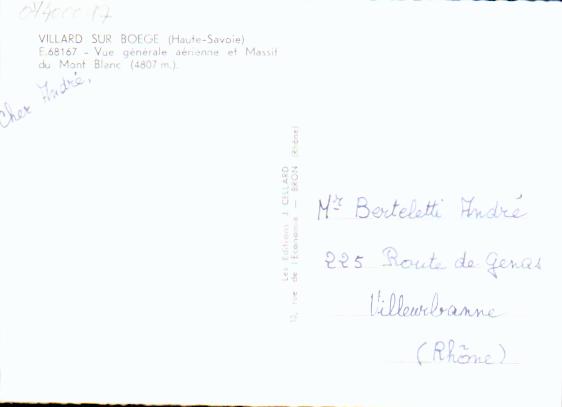 VILLARD SUR BOEGE (Haute-Savoie)
E.68167 - Vue générale aérienne et Massif
du Mont Blanc (4807 m.).
Cher André,
Les Editions J. CELLARD
10, rue de l'Economie — BRON (Rhône)
Mr Berteletti André
225 Route de Genas
Villeurbanne
(Rhône)